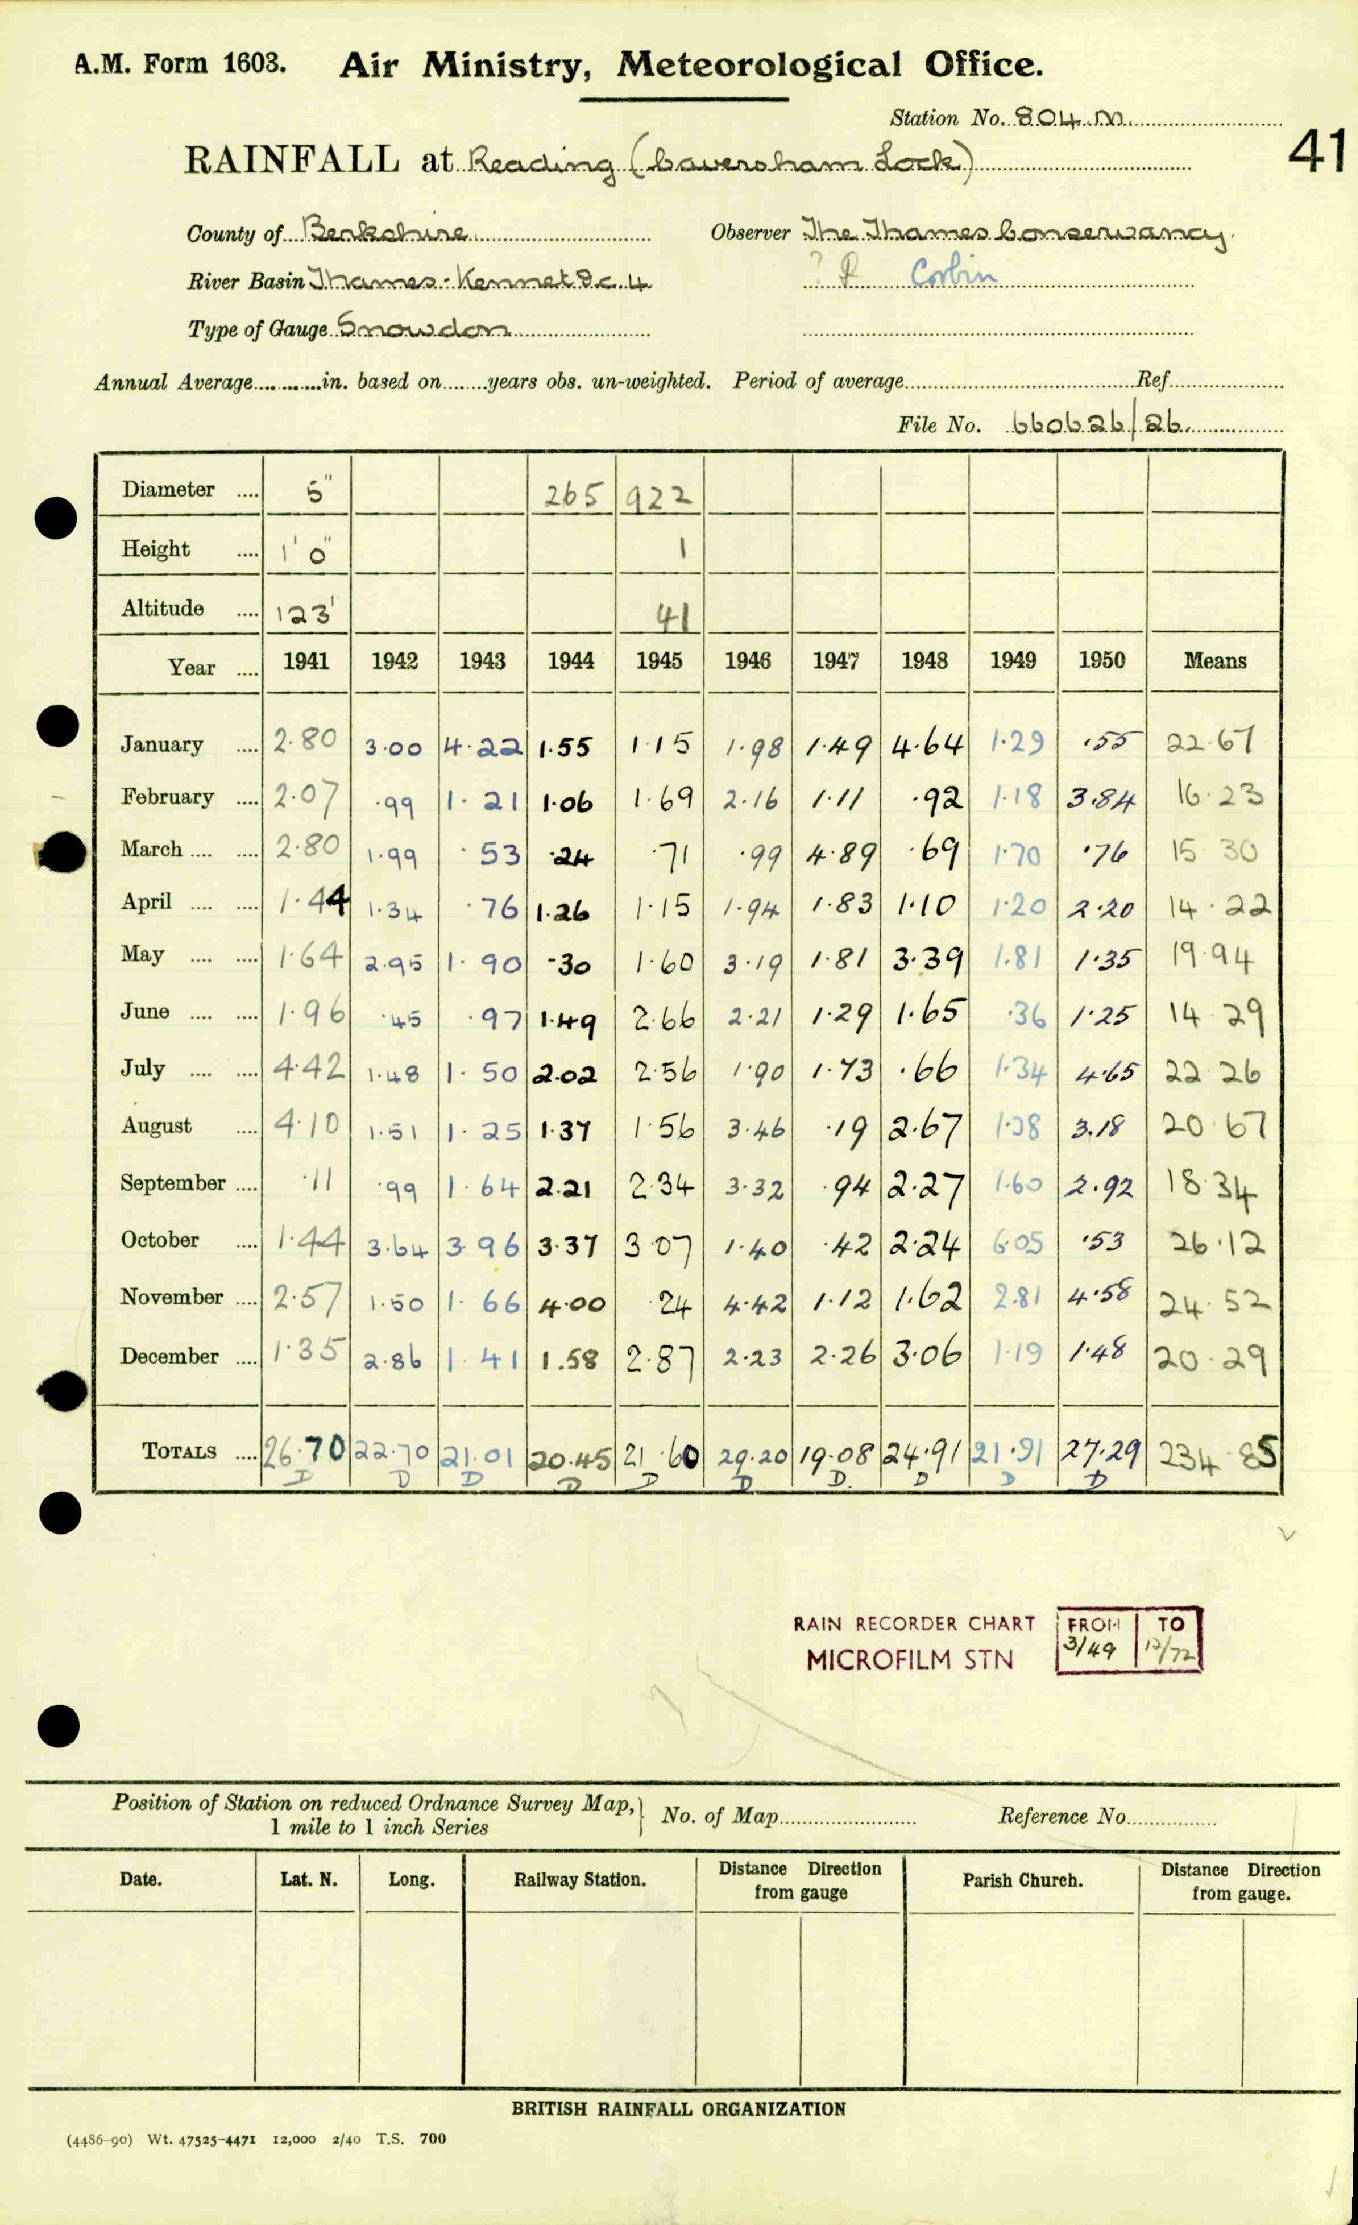 A.M. Form 1603. Air Ministry, Meteorological Office.
Station No. 804.M.
41
RAINFALL at Reading (Caversham Lock)
County of Berkshire Observer The Thames Conservancy.
River Basin Thames-Kennet &c. 4 ? Corbin
Type of Gauge Snowdon
Annual Average in. based on years obs. un-weighted. Period of average Ref
File No. 660626/26
Diameter 5" 265 922
Height 1' 0" 1
Altitude 123' 41
Year 1941 1942 1943 1944 1945 1946 1947 1948 1949 1950 Means
January 2.80 3.00 4.22 1.55 1.15 1.98 1.49 4.64 1.29 .55 22.67
February 2.07 .99 1.21 1.06 1.69 2.16 1.11 .92 1.18 3.84 16.23
March 2.80 1.99 .53 .24 .71 .99 4.89 .69 1.70 .76 15 30
April 1.44 1.34 .76 1.26 1.15 1.94 1.83 1.10 1.20 2.20 14.22
May 1.64 2.95 1.90 .30 1.60 3.19 1.81 3.39 1.81 1.35 19.94
June 1.96 .45 .97 1.49 2.66 2.21 1.29 1.65 .36 1.25 14 29
July 4.42 1.48 1.50 2.02 2.56 1.90 1.73 .66 1.34 4.65 22 26
August 4.10 1.51 1.25 1.37 1.56 3.46 .19 2.67 1.38 3.18 20.67
September .11 .99 1.64 2.21 2.34 3.32 .94 2.27 1.60 2.92 18.34
October 1.44 3.64 3.96 3.37 3 07 1.40 .42 2.24 6.05 .53 26.12
November 2.57 1.50 1.66 4.00 .24 4.42 1.12 1.62 2.81 4.58 24.52
December 1.35 2.86 1.41 1.58 2.87 2.23 2.26 3.06 1.19 1.48 20.29
TOTALS 26.70 22.70 21.01 20.45 21.60 29.20 19.08 24.91 21.91 27.29 234.85
D D D D D D D. D D D
RAIN RECORDER CHART FROM TO
MICROFILM STN 3/49 12/72
Position of Station on reduced Ordnance Survey Map, No. of Map Reference No.
1 mile to 1 inch Series
Date. Lat. N. Long. Railway Station. Distance Direction from gauge Parish Church. Distance Direction from gauge.
BRITISH RAINFALL ORGANIZATION
(4486-90) Wt. 47525-4471 12,000 2/40 T.S. 700